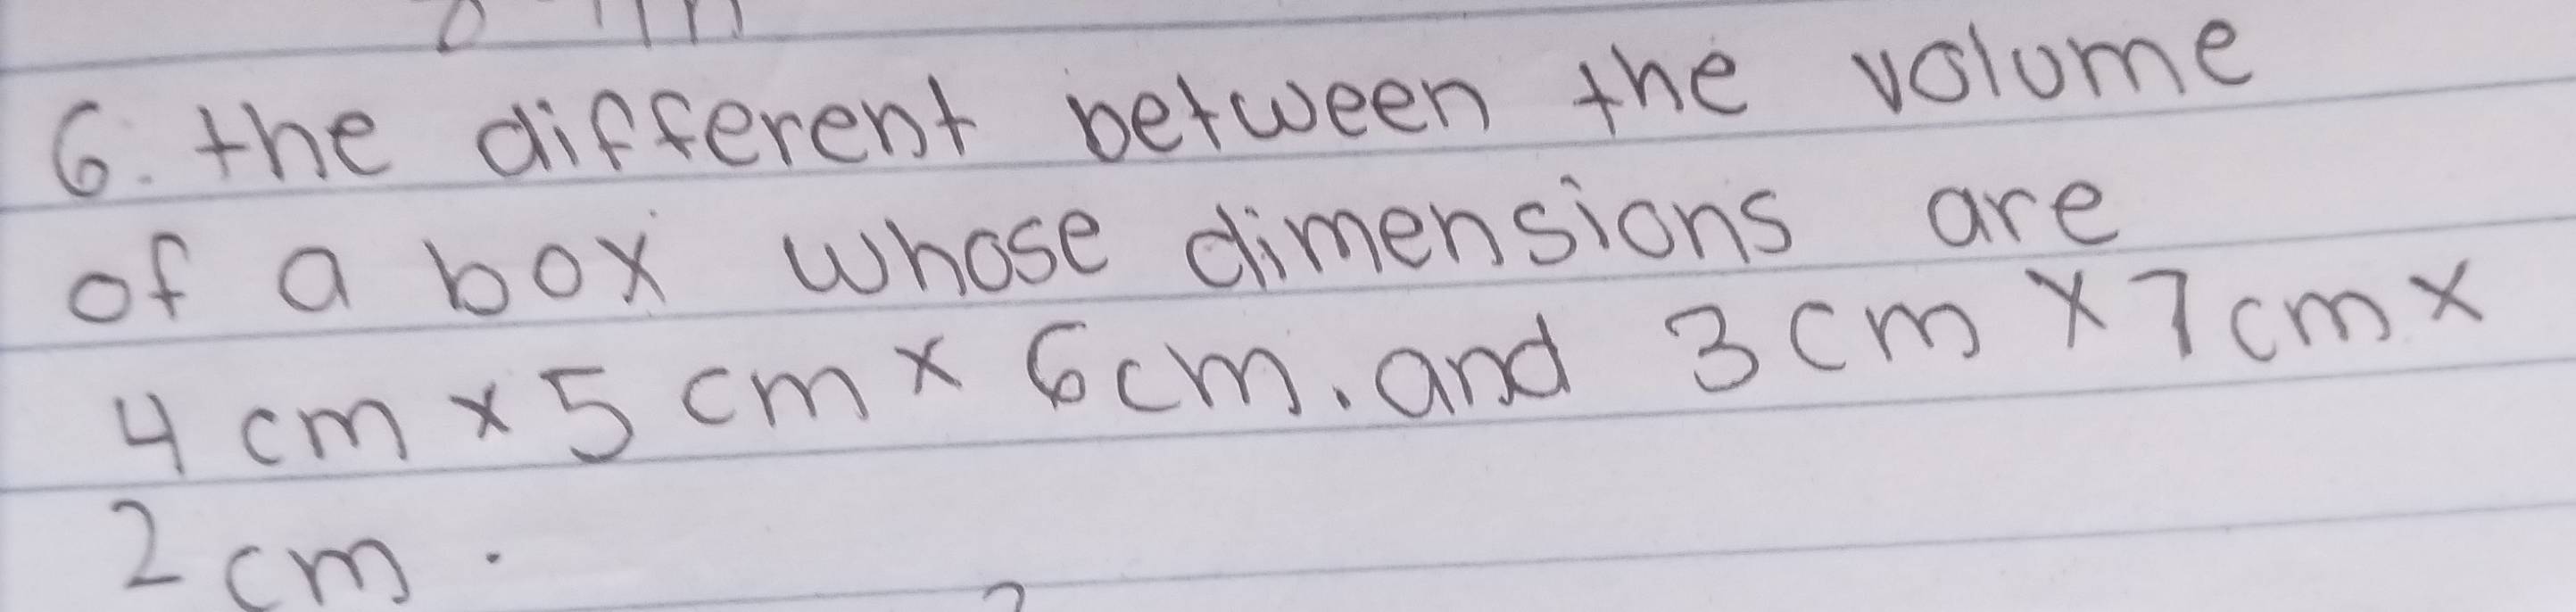 6. the different between the volume
of a box whose dimensions are
4 cm x 5 cm x 6cm. and 3 cm x 7 cm x
2 cm.